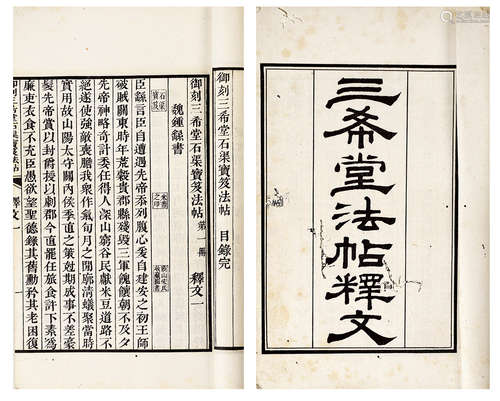 三希堂法帖釋文
御刻三希堂石渠寶笈法帖 目錄完
御刻三希堂石渠寶笈法帖 第一冊 釋文一
魏鍾繇書
臣繇言臣自遭遇先帝忝列腹心爰自建安之初王師
破賊關東時年荒穀貴郡縣殘毀三軍餽饟朝不及夕
先帝神略奇計委任得人深山窮谷民獻米豆道路不
絕遂使強敵喪膽我衆作氣旬月之間廓清蟻聚當時
實用故山陽太守關內侯季直之策剋期成事不差豪
髮先帝賞以封爵授以劇郡今直罷任旅食許下素爲
廉吏衣食不充臣愚欲望聖德錄其舊勳矜其老困復
御刻三希堂石渠寶笈法帖 釋文一